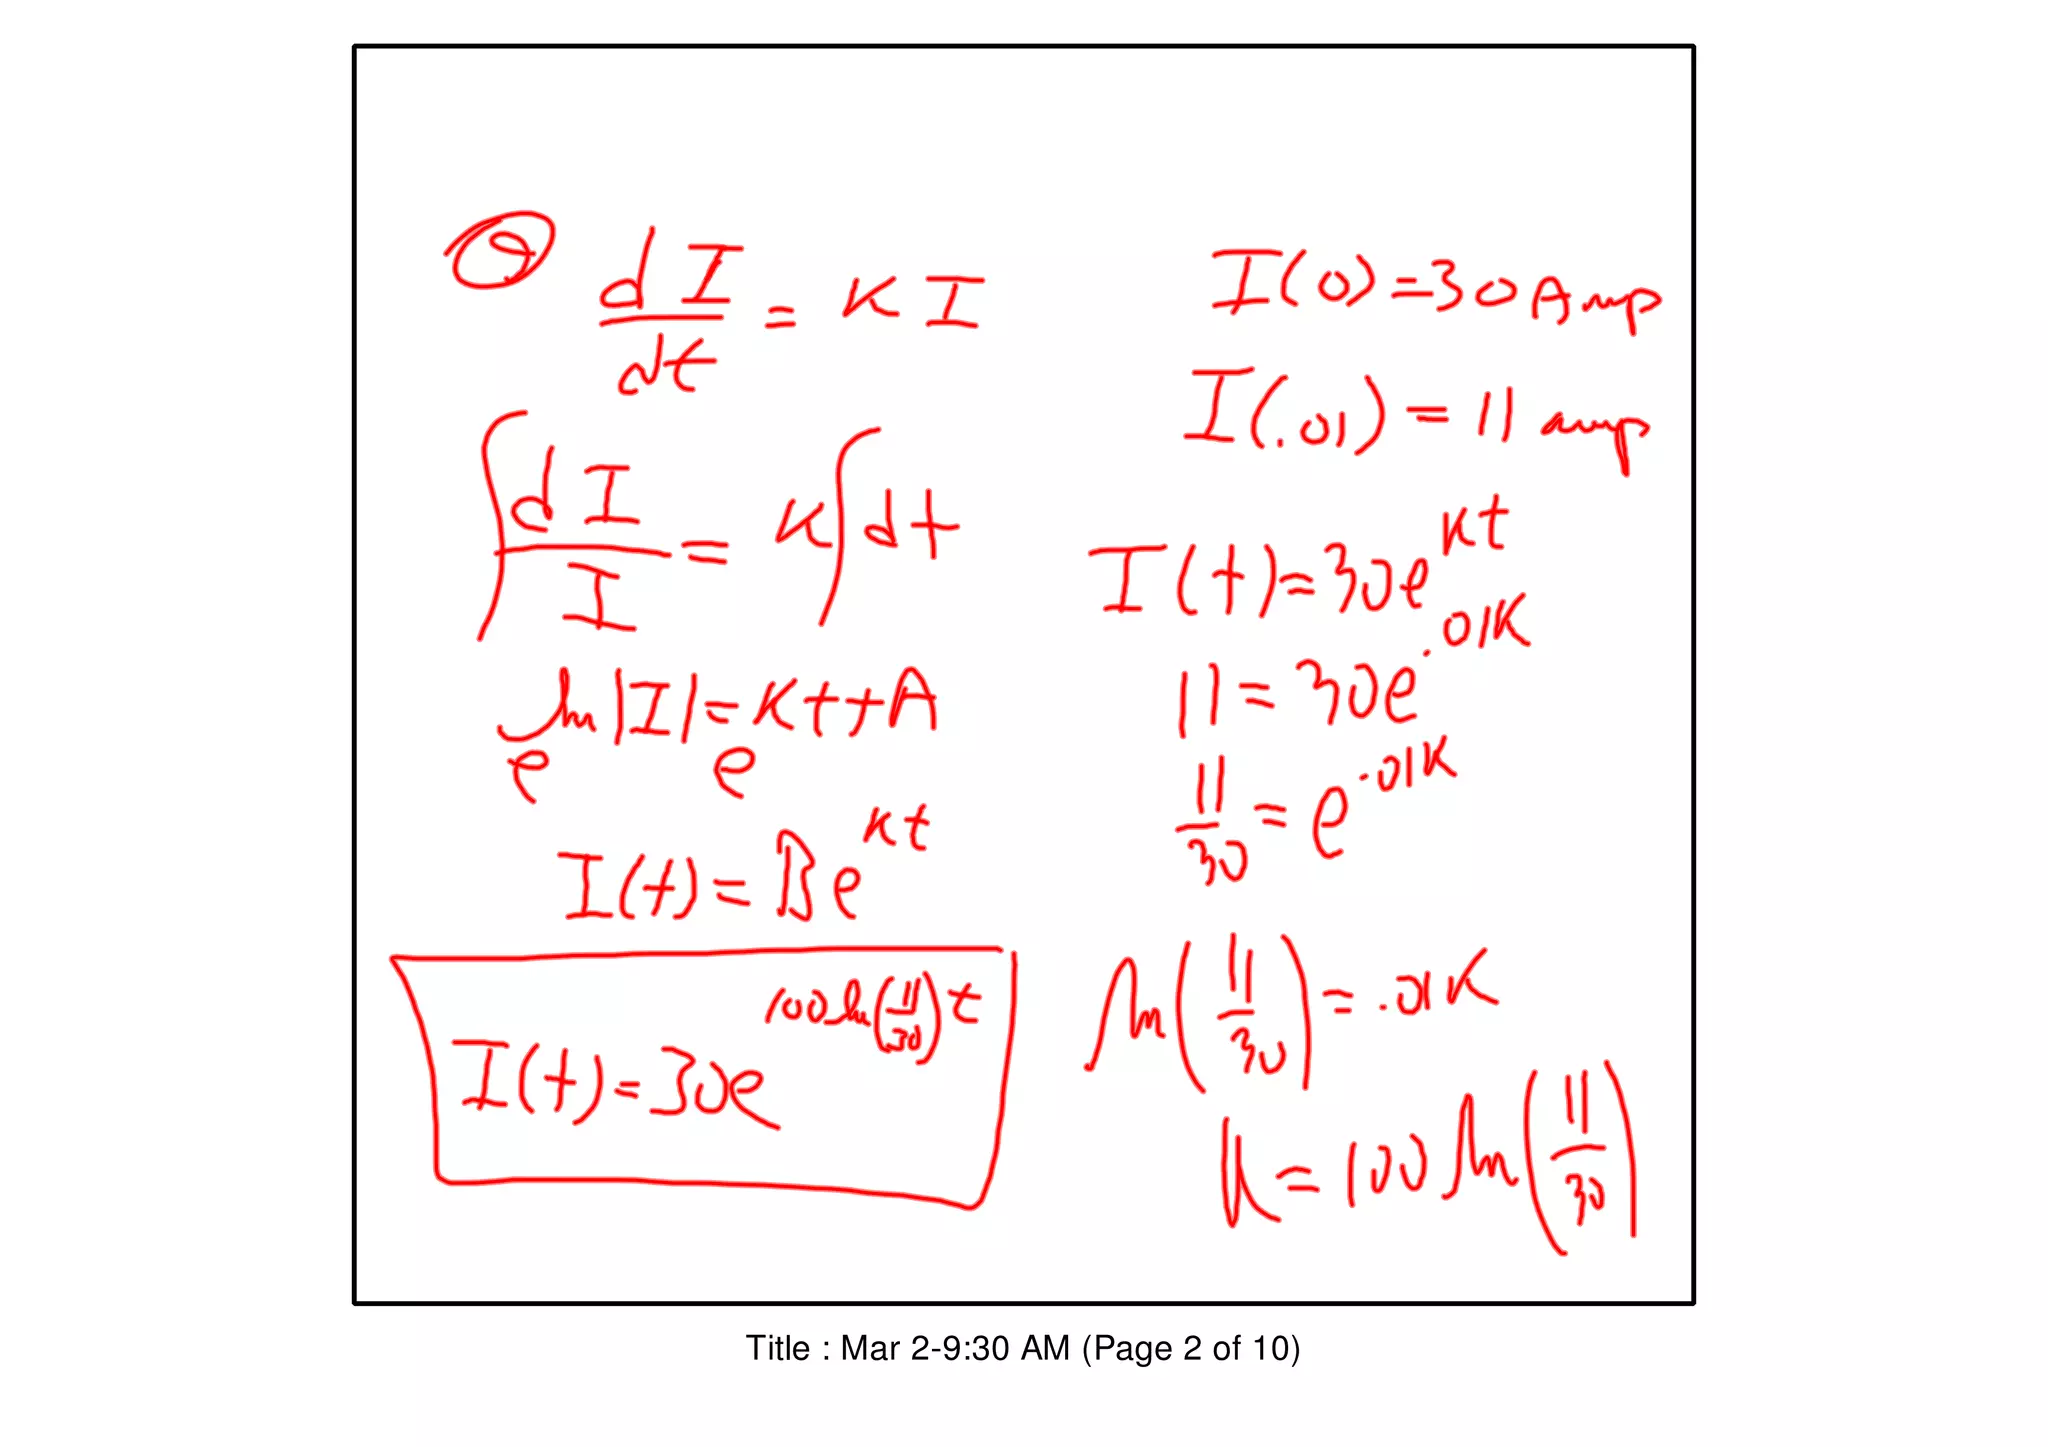 ② dI/dt = kI
∫ dI/I = k∫dt
ln|I| = kt + A
e e
I(t) = Be^kt
I(t) = 30e^100ln(11/30)t
I(0) = 30 Amp
I(.01) = 11 amp
I(t) = 30e^kt
11 = 30e^.01k
11/30 = e^.01k
ln(11/30) = .01k
k = 100 ln(11/30)
Title : Mar 2-9:30 AM (Page 2 of 10)